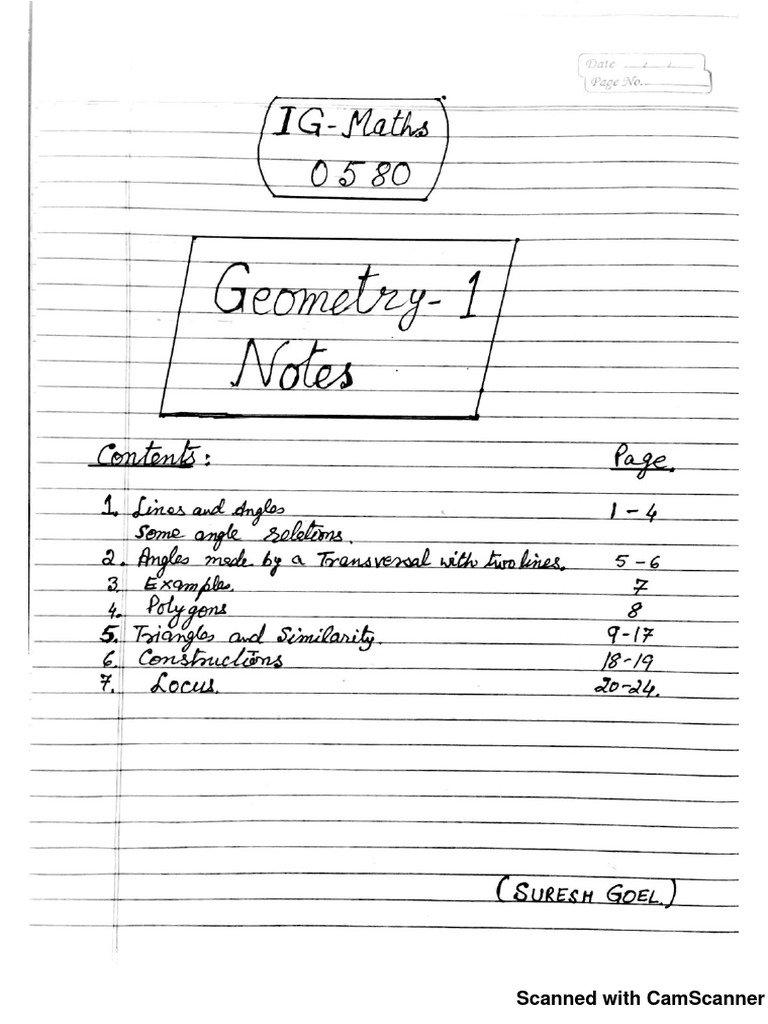 Date / /
Page No.
IG-Maths
0580
Geometry-1
Notes
Contents: Page.
1. Lines and Angles 1-4
Some angle relations.
2. Angles made by a Transversal with two lines. 5-6
3. Examples. 7
4. Polygons 8
5. Triangles and Similarity. 9-17
6. Constructions 18-19
7. Locus. 20-24.
(SURESH GOEL.)
Scanned with CamScanner